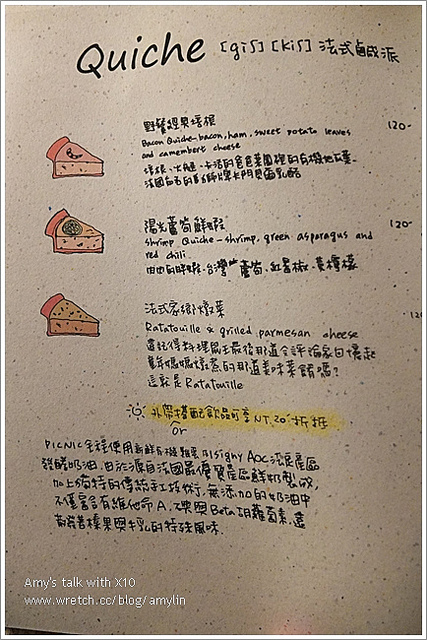 Quiche [giʃ] [kiʃ] 法式鹹派
野餐經典培根 120-
Bacon Quiche-bacon, ham, sweet potato leaves
and camembert cheese
培根、火腿、
陽光蘆筍鮮蝦 120-
shrimp Quiche-shrimp, green asparagus and
red chili
台灣蘆筍、紅辣椒、黃檸檬
法式家鄉燉菜 12
Ratatouille & grilled parmesan cheese
還記得料理鼠王最後那道令評論家回憶起
童年媽媽燉煮的那道美味菜餚嗎?
這就是Ratatouille
外帶搭配飲品可享NT.20折抵
or
PICNIC全程使用 Isigny AOC法定產區
發酵奶油,由於源自法國最優質產區鮮奶製成,
加上獨特的傳統手工技術,無添加的奶油中
不僅富含有維他命A、 Beta胡蘿蔔素,還
榛果與牛乳的特殊風味.
Amy's talk with X10
www.wretch.cc/blog/amylin